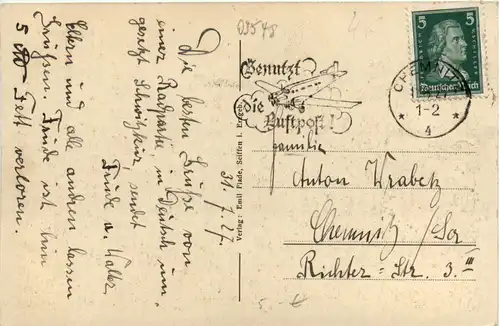 Die besten Grüße von
einer Radpartie, in Deutsch um-
gesetzt Schwitzkur, sendet
Trude u. Walter
Eltern und alle andren lassen
grüßen. Trude ist ihr
5 Fett verloren.
31.7.27.
Verlag: Emil Flade, Seiffen i. Erzgeb.
Benutzt
die
Luftpost!
5 5
Deutsches Reich
CHEMNITZ
1-2
* 4 *
Familie
Anton Wrabetz
Chemnitz/Sa
Richter-Str. 3. III
5,- €